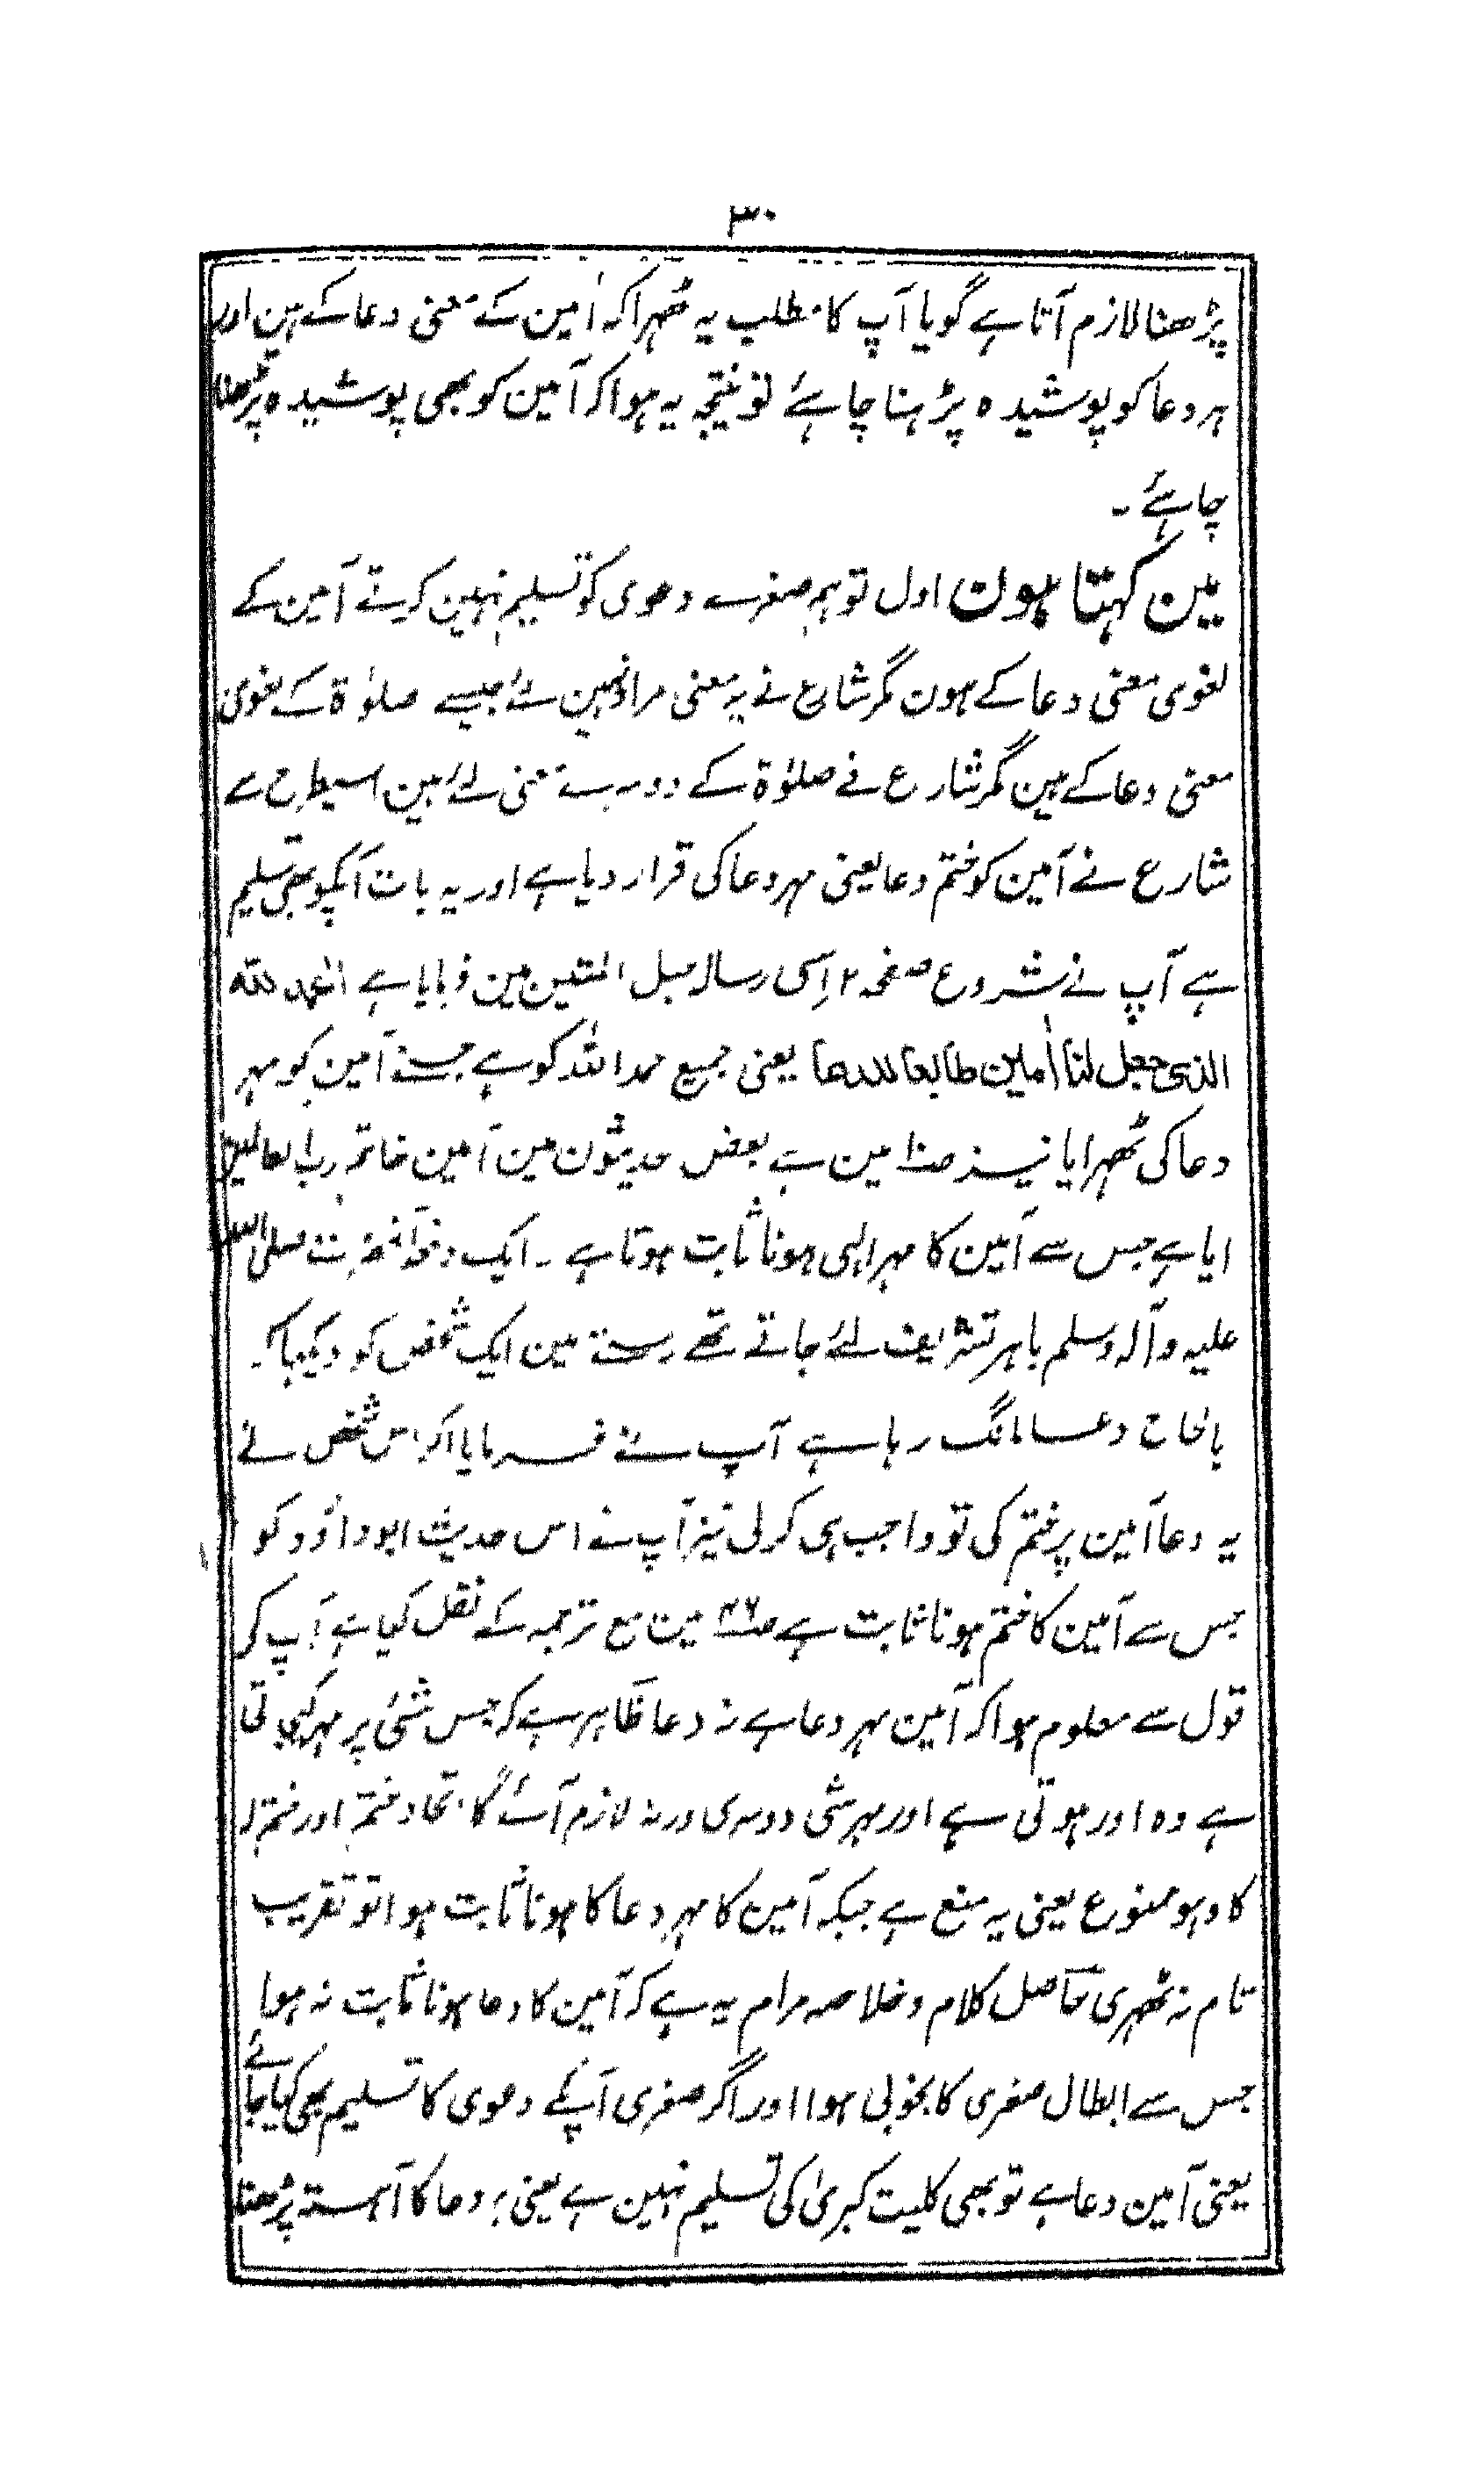 ۳۰
پڑھنا لازم آتا ہے گویا آپ کا مطلب یہ ٹھہرا کہ اٰمین کے معنی دعا کے ہین اور
ہر دعا کو پوشیدہ پڑہنا چاہئے تو نتیجہ یہ ہوا کہ آمین کو بھی پوشیدہ پڑھنا
چاہئے ۔
مین کہتا ہون اول تو ہم صغرے دعوی کو تسلیم نہین کرتے آمین کے
لغوی معنی دعا کے ہون مگر شارع نے یہ معنی مراد نہین لئے جیسے صلوٰۃ کے لغوی
معنی دعا کے ہین مگر شارع نے صلوٰۃ کے دوسرے معنی لئے ہین اسیطرح سے
شارع نے آمین کو ختم دعا یعنی مہر دعا کی قرار دیا ہے اور یہ بات آپکو بھی تسلیم
ہے آپ نے شروع صفحہ ۲ اِسی رسالہ حبل المتین مین فرمایا ہے الحمد للہ
الذی جعل لنا اٰمین طابعا للدعا یعنی جمیع حمد اللہ کو ہے جسنے آمین کو مہر
دعا کی ٹھہرایا نیز صنا مین ہے بعض حدیثون مین آمین خاتم رب العالمین
ایا ہے جس سے آمین کا مہر الہی ہونا ثابت ہوتا ہے ۔ ایک دفعہ آنحضرت صلی اللہ
علیہ وآلہ وسلم باہر تشریف لئے جاتے تھے رستہ مین ایک شخص کو دیکہا کہ
بالحاح دعا مانگ رہا ہے آپ نے فرمایا اگر اس شخص نے
یہ دعا آمین پر ختم کی تو واجب ہی کر لی نیز آپ نے اس حدیث ابوداؤد کو
جس سے آمین کا ختم ہونا ثابت ہے صـ۴۶ مین مع ترجمہ کے نقل کیا ہے آپ کی
قول سے معلوم ہوا کہ آمین مہر دعا ہے نہ دعا ظاہر ہے کہ جس شئی پر مہر کیجاتی
ہے وہ اور ہوتی ہے اور مہر شی دوسری ورنہ لازم آئے گا اتحاد ختم اور ختم لہ
کا وہو ممنوع یعنی یہ منع ہے جبکہ آمین کا مہر دعا کا ہونا ثابت ہوا تو تقریب
تام نہ ٹھہری حاصل کلام و خلاصہ مرام یہ ہے کہ آمین کا دعا ہونا ثابت نہ ہوا
جس سے ابطال صغری کا بخوبی ہوا اور اگر صغری آپکے دعوی کا تسلیم بھی کیا جائے
یعنی آمین دعا ہے تو بھی کلیت کبریٰ کی تسلیم نہین ہے یعنی ہر دعا کا آہستہ پڑھنا